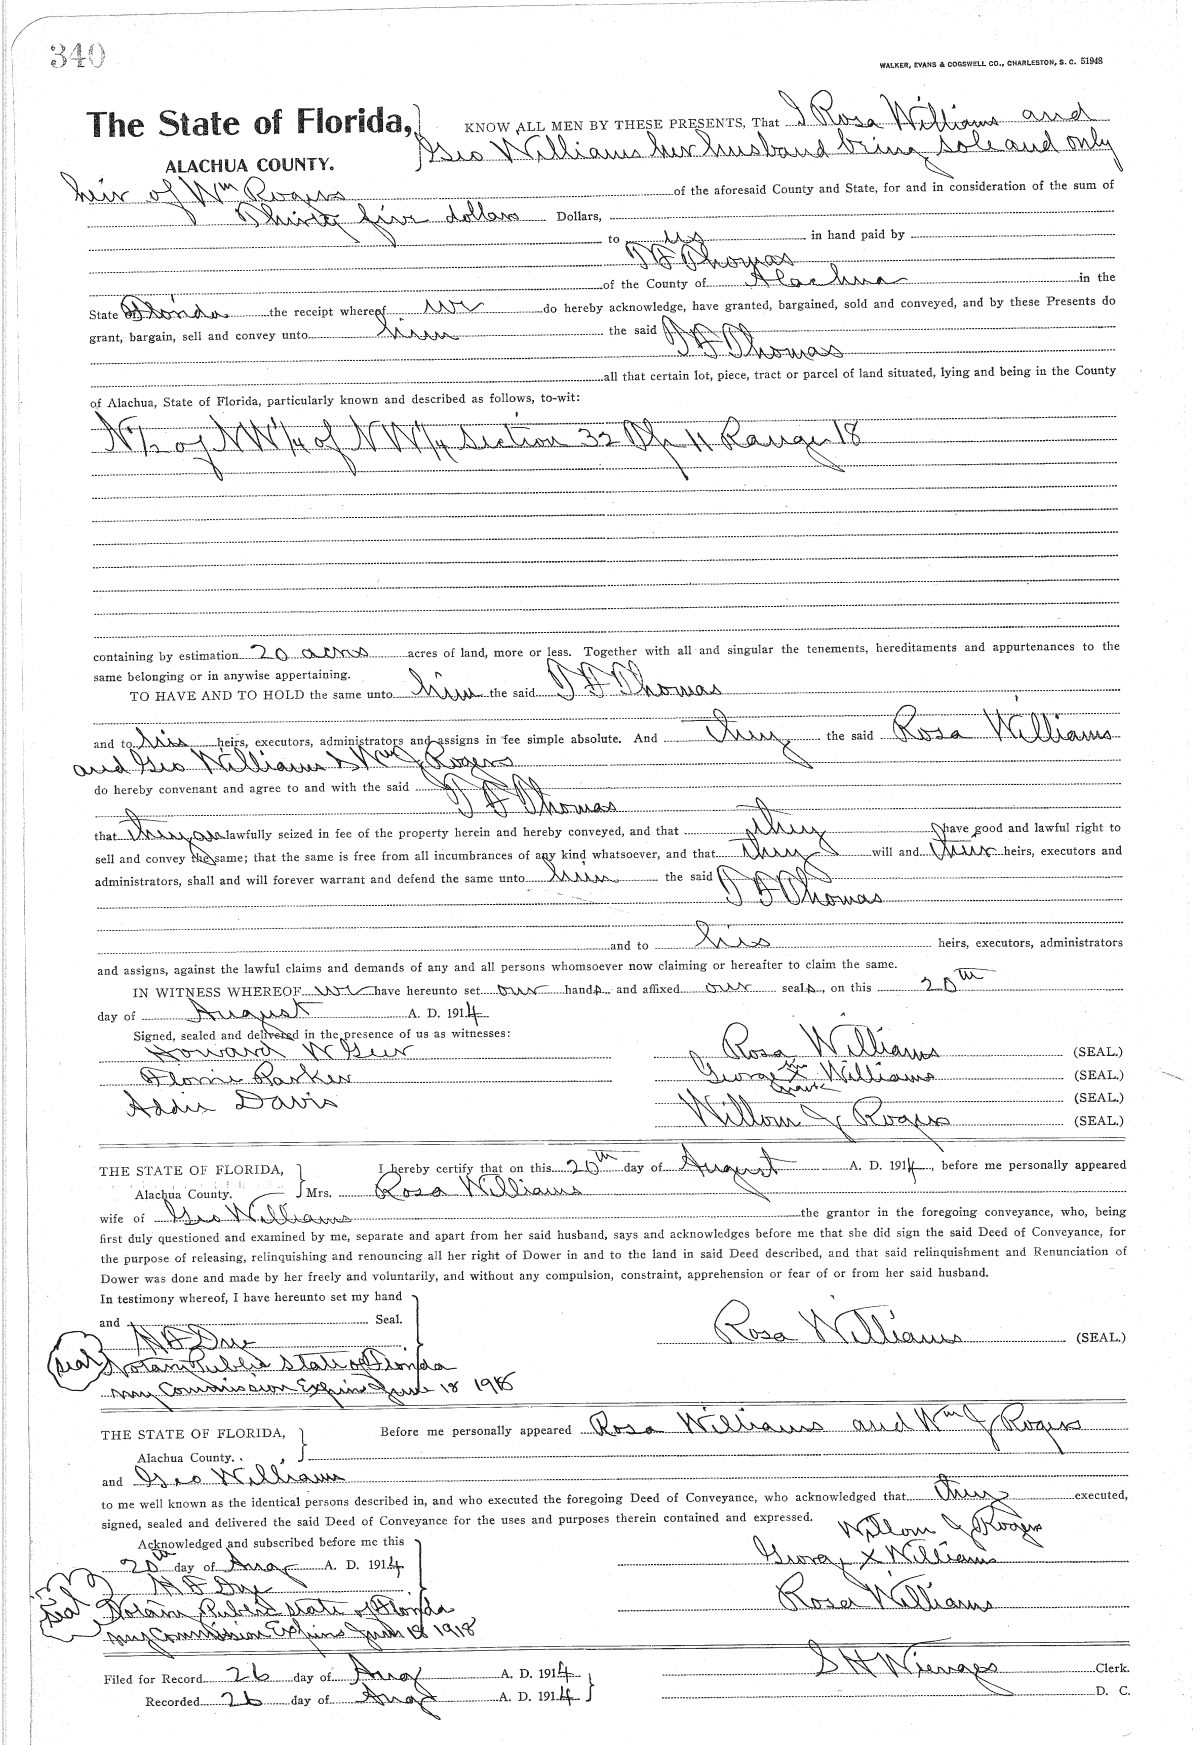 340
WALKER, EVANS & COGSWELL CO., CHARLESTON, S. C. 51948
The State of Florida, KNOW ALL MEN BY THESE PRESENTS, That I Rosa Williams and
ALACHUA COUNTY. Geo Williams her husband being sole and only
heir of Wm Rogers of the aforesaid County and State, for and in consideration of the sum of
Thirty five dollars Dollars,
to us in hand paid by
T F Thomas
of the County of Alachua in the
State Florida the receipt whereof we do hereby acknowledge, have granted, bargained, sold and conveyed, and by these Presents do
grant, bargain, sell and convey unto him the said T F Thomas
all that certain lot, piece, tract or parcel of land situated, lying and being in the County
of Alachua, State of Florida, particularly known and described as follows, to-wit:
N½ of NW¼ of NW¼ Section 32 Tp 11 Range 18
containing by estimation 20 acres acres of land, more or less. Together with all and singular the tenements, hereditaments and appurtenances to the
same belonging or in anywise appertaining.
TO HAVE AND TO HOLD the same unto him the said T F Thomas
and to his heirs, executors, administrators and assigns in fee simple absolute. And they the said Rosa Williams
and Geo Williams & Wm J Rogers
do hereby convenant and agree to and with the said T F Thomas
that they are lawfully seized in fee of the property herein and hereby conveyed, and that they have good and lawful right to
sell and convey the same; that the same is free from all incumbrances of any kind whatsoever, and that they will and their heirs, executors and
administrators, shall and will forever warrant and defend the same unto him the said T F Thomas
and to his heirs, executors, administrators
and assigns, against the lawful claims and demands of any and all persons whomsoever now claiming or hereafter to claim the same.
IN WITNESS WHEREOF we have hereunto set our hands and affixed our seals, on this 20th
day of August A. D. 1914
Signed, sealed and delivered in the presence of us as witnesses:
Howard W Rosa Williams (SEAL.)
Florrie Parker George his X mark Williams (SEAL.)
Addie Davis (SEAL.)
Willom J Rogers (SEAL.)
THE STATE OF FLORIDA, I hereby certify that on this 20th day of August A. D. 1914, before me personally appeared
Alachua County. Mrs. Rosa Williams
wife of Geo Williams the grantor in the foregoing conveyance, who, being
first duly questioned and examined by me, separate and apart from her said husband, says and acknowledges before me that she did sign the said Deed of Conveyance, for
the purpose of releasing, relinquishing and renouncing all her right of Dower in and to the land in said Deed described, and that said relinquishment and Renunciation of
Dower was done and made by her freely and voluntarily, and without any compulsion, constraint, apprehension or fear of or from her said husband.
In testimony whereof, I have hereunto set my hand
and Seal.
H F Dye Rosa Williams (SEAL.)
seal Notary Public State of Florida
My Commission Expires June 18 1918
THE STATE OF FLORIDA, Before me personally appeared Rosa Williams and Wm J Rogers
Alachua County.
and Geo Williams
to me well known as the identical persons described in, and who executed the foregoing Deed of Conveyance, who acknowledged that they executed,
signed, sealed and delivered the said Deed of Conveyance for the uses and purposes therein contained and expressed.
Acknowledged and subscribed before me this Willom J Rogers
20th day of Aug A. D. 1914 George X Williams
H F Dye Rosa Williams
seal Notary Public State of Florida
My Commission Expires June 18 1918
Filed for Record 26 day of Aug A. D. 1914 S H Wienges Clerk.
Recorded 26 day of Aug A. D. 1914 D. C.